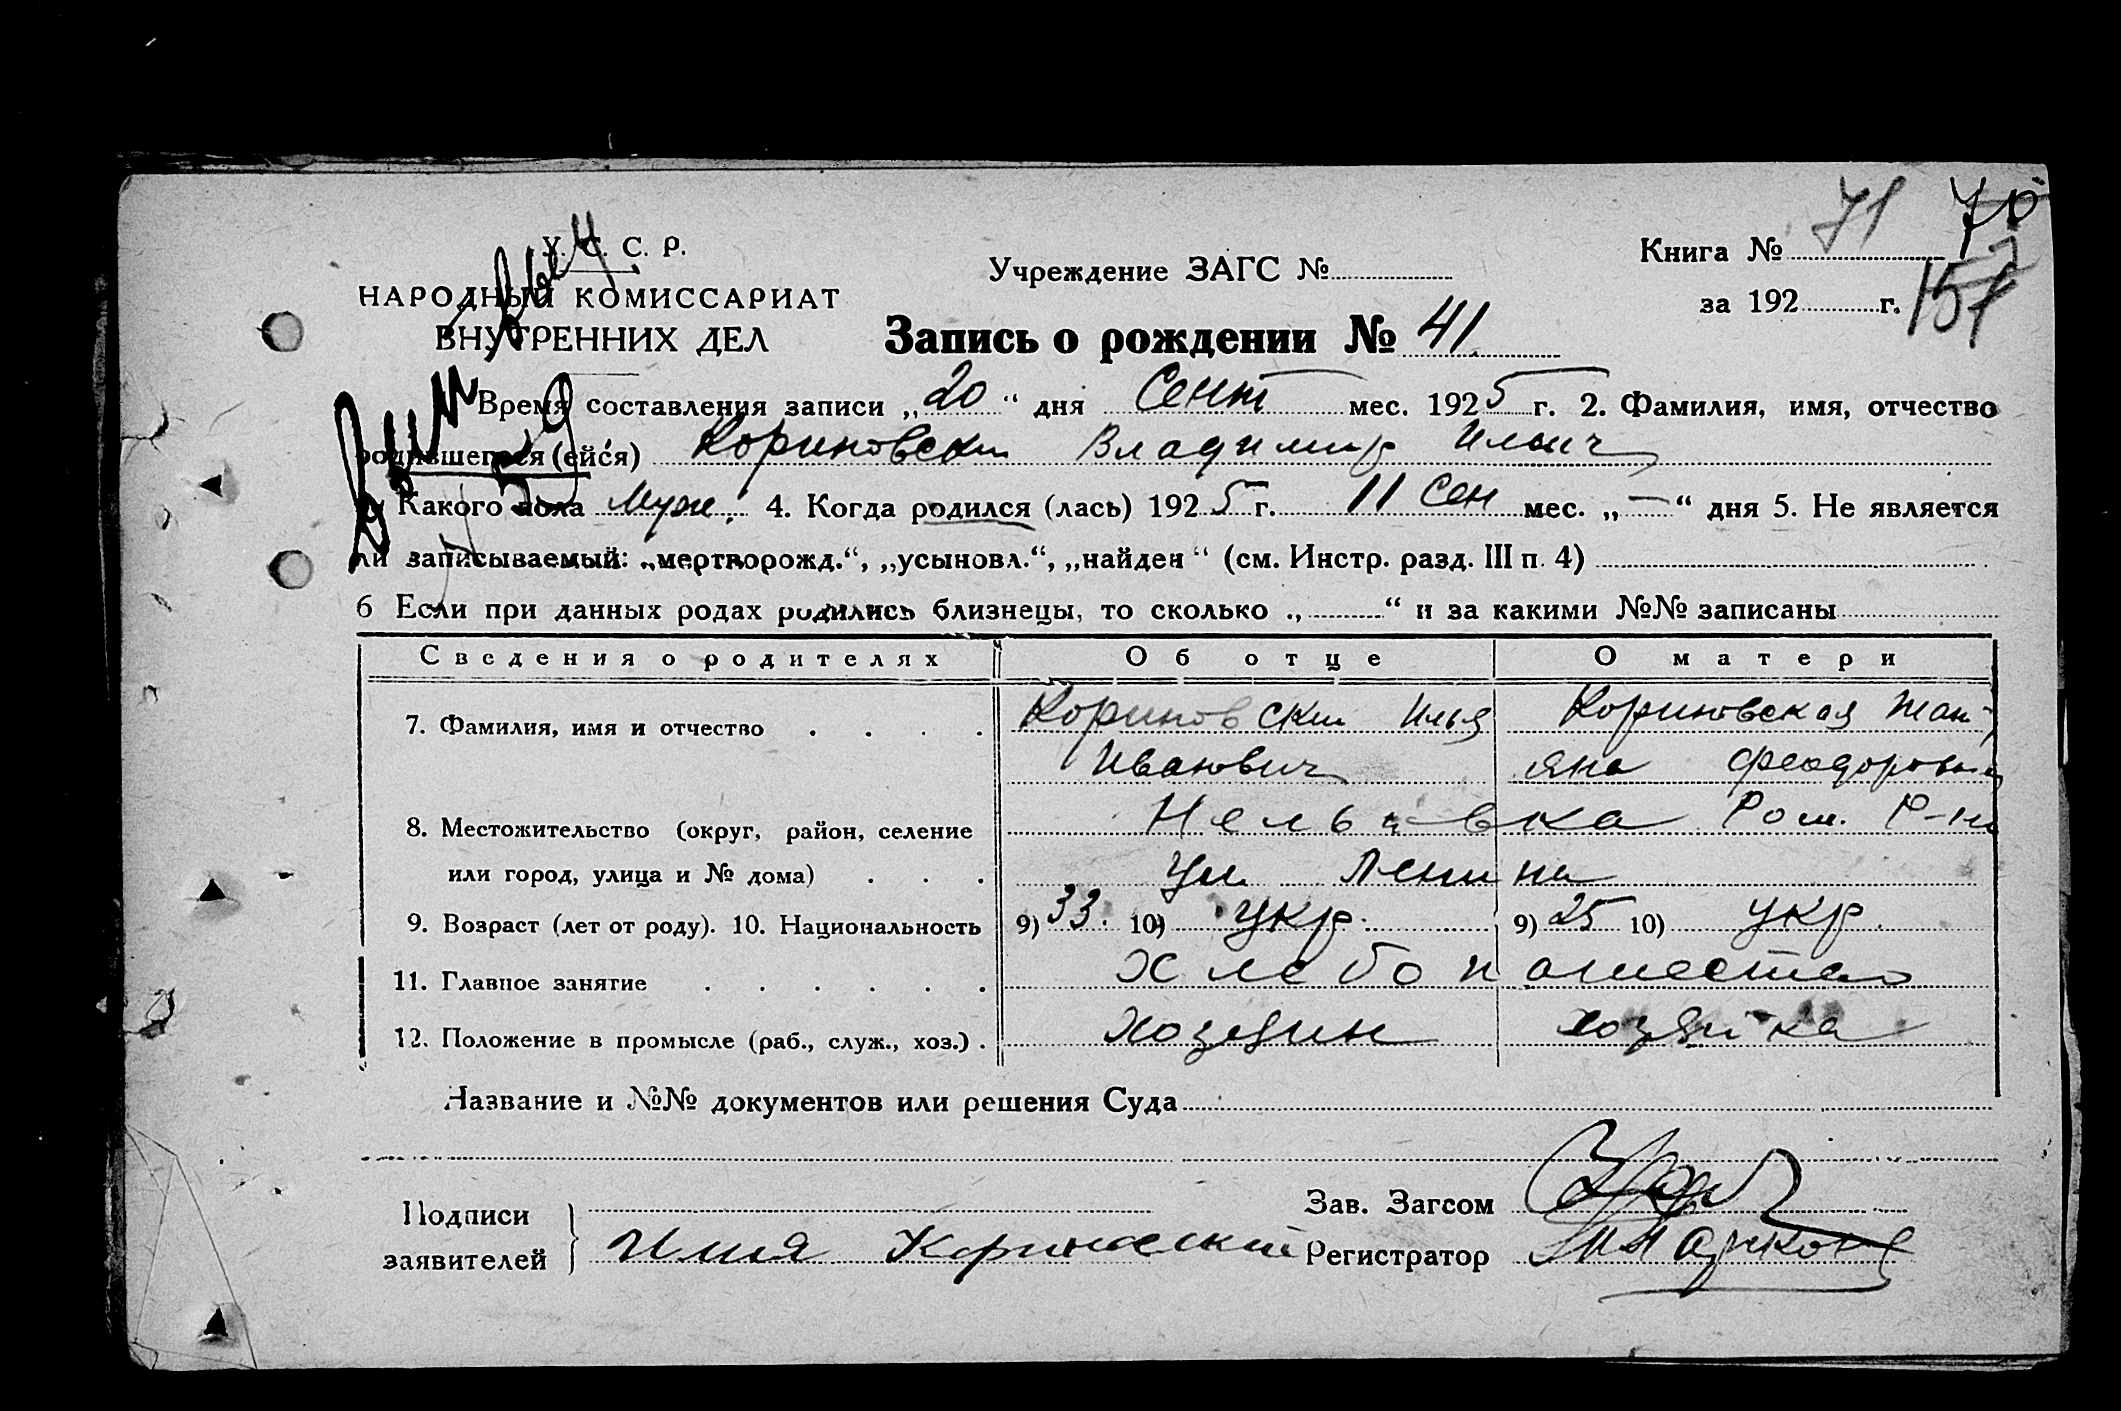 71 70
157
У. С. С. Р.
НАРОДНЫЙ КОМИССАРИАТ
ВНУТРЕННИХ ДЕЛ
Учреждение ЗАГС №
Книга №
за 192 г.
Запись о рождении № 41.
Время составления записи „20“ дня Сент мес. 1925 г. 2. Фамилия, имя, отчество
родившегося (ейся) Кориновски Владимир Ильич
Какого пола Муж. 4. Когда родился (лась) 1925 г. 11 Сен мес. „—“ дня 5. Не является
ли записываемый: „мертворожд.“, „усыновл.“, „найден“ (см. Инстр. разд. III п. 4)
6 Если при данных родах родились близнецы, то сколько „ “ и за какими №№ записаны
Сведения о родителях Об отце О матери
7. Фамилия, имя и отчество Кориновски Илья Кориновская
Иванович Феодоровна
8. Местожительство (округ, район, селение Рош. Р-на
или город, улица и № дома) ул. Ленина
9. Возраст (лет от роду). 10. Национальность 9) 33. 10) укр. 9) 25 10) укр.
11. Главное занятие Хлебопашество
12. Положение в промысле (раб., служ., хоз.) хозяин хозяйка
Название и №№ документов или решения Суда
Подписи
заявителей Илья
Зав. Загсом
Регистратор